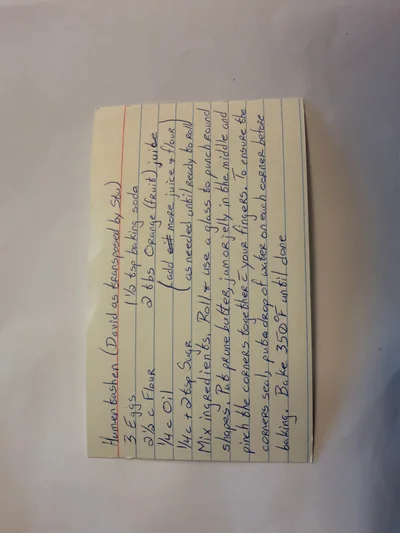 Humentashen (David as transposed by Stu)
3 Eggs 1½ tsp baking soda
2½ c Flour 2 tbs Orange (fruit) juice
¼ c Oil (add more juice & flour
¼ c + 2 tsp Sugr as needed until ready to roll)
Mix ingredients. Roll & use a glass to punch round
shapes. Put prune butter, jam or jelly in the middle and
pinch the corners together c̄ your fingers. To ensure the
corners seal, put a drop of water on each corner before
baking. Bake 350°F until done